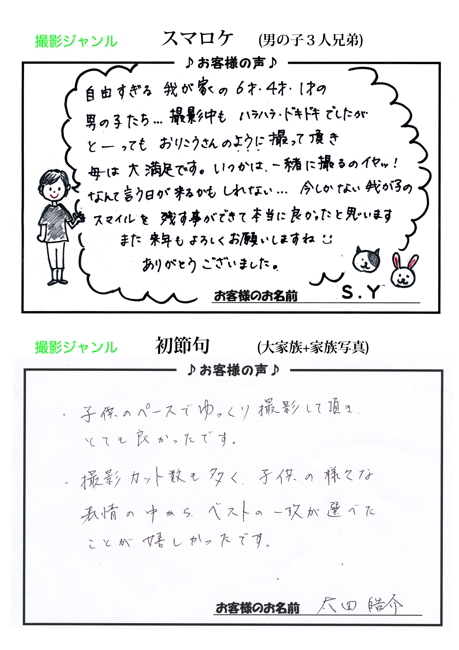 撮影ジャンル スマロケ (男の子3人兄弟)
♪お客様の声♪
自由すぎる 我が家の 6才・4才・1才の
男の子たち… 撮影中も ハラハラ・ドキドキでしたが
とーっても おりこうさんのように 撮って頂き
母は 大満足です。いつかは、一緒に撮るのイヤッ!
なんて言う日が来るかも しれない… 今しかない 我が子の
スマイルを 残す事ができて本当に良かったと思います
また 来年も よろしくお願いしますね
ありがとうございました。
お客様のお名前 S.Y
撮影ジャンル 初節句 (大家族+家族写真)
♪お客様の声♪
・子供のペースでゆっくり撮影して頂き、
とても良かったです。
・撮影カット数も多く、子供の様々な
表情の中から、ベストの一枚が選べた
ことが嬉しかったです。
お客様のお名前 太田 皓介